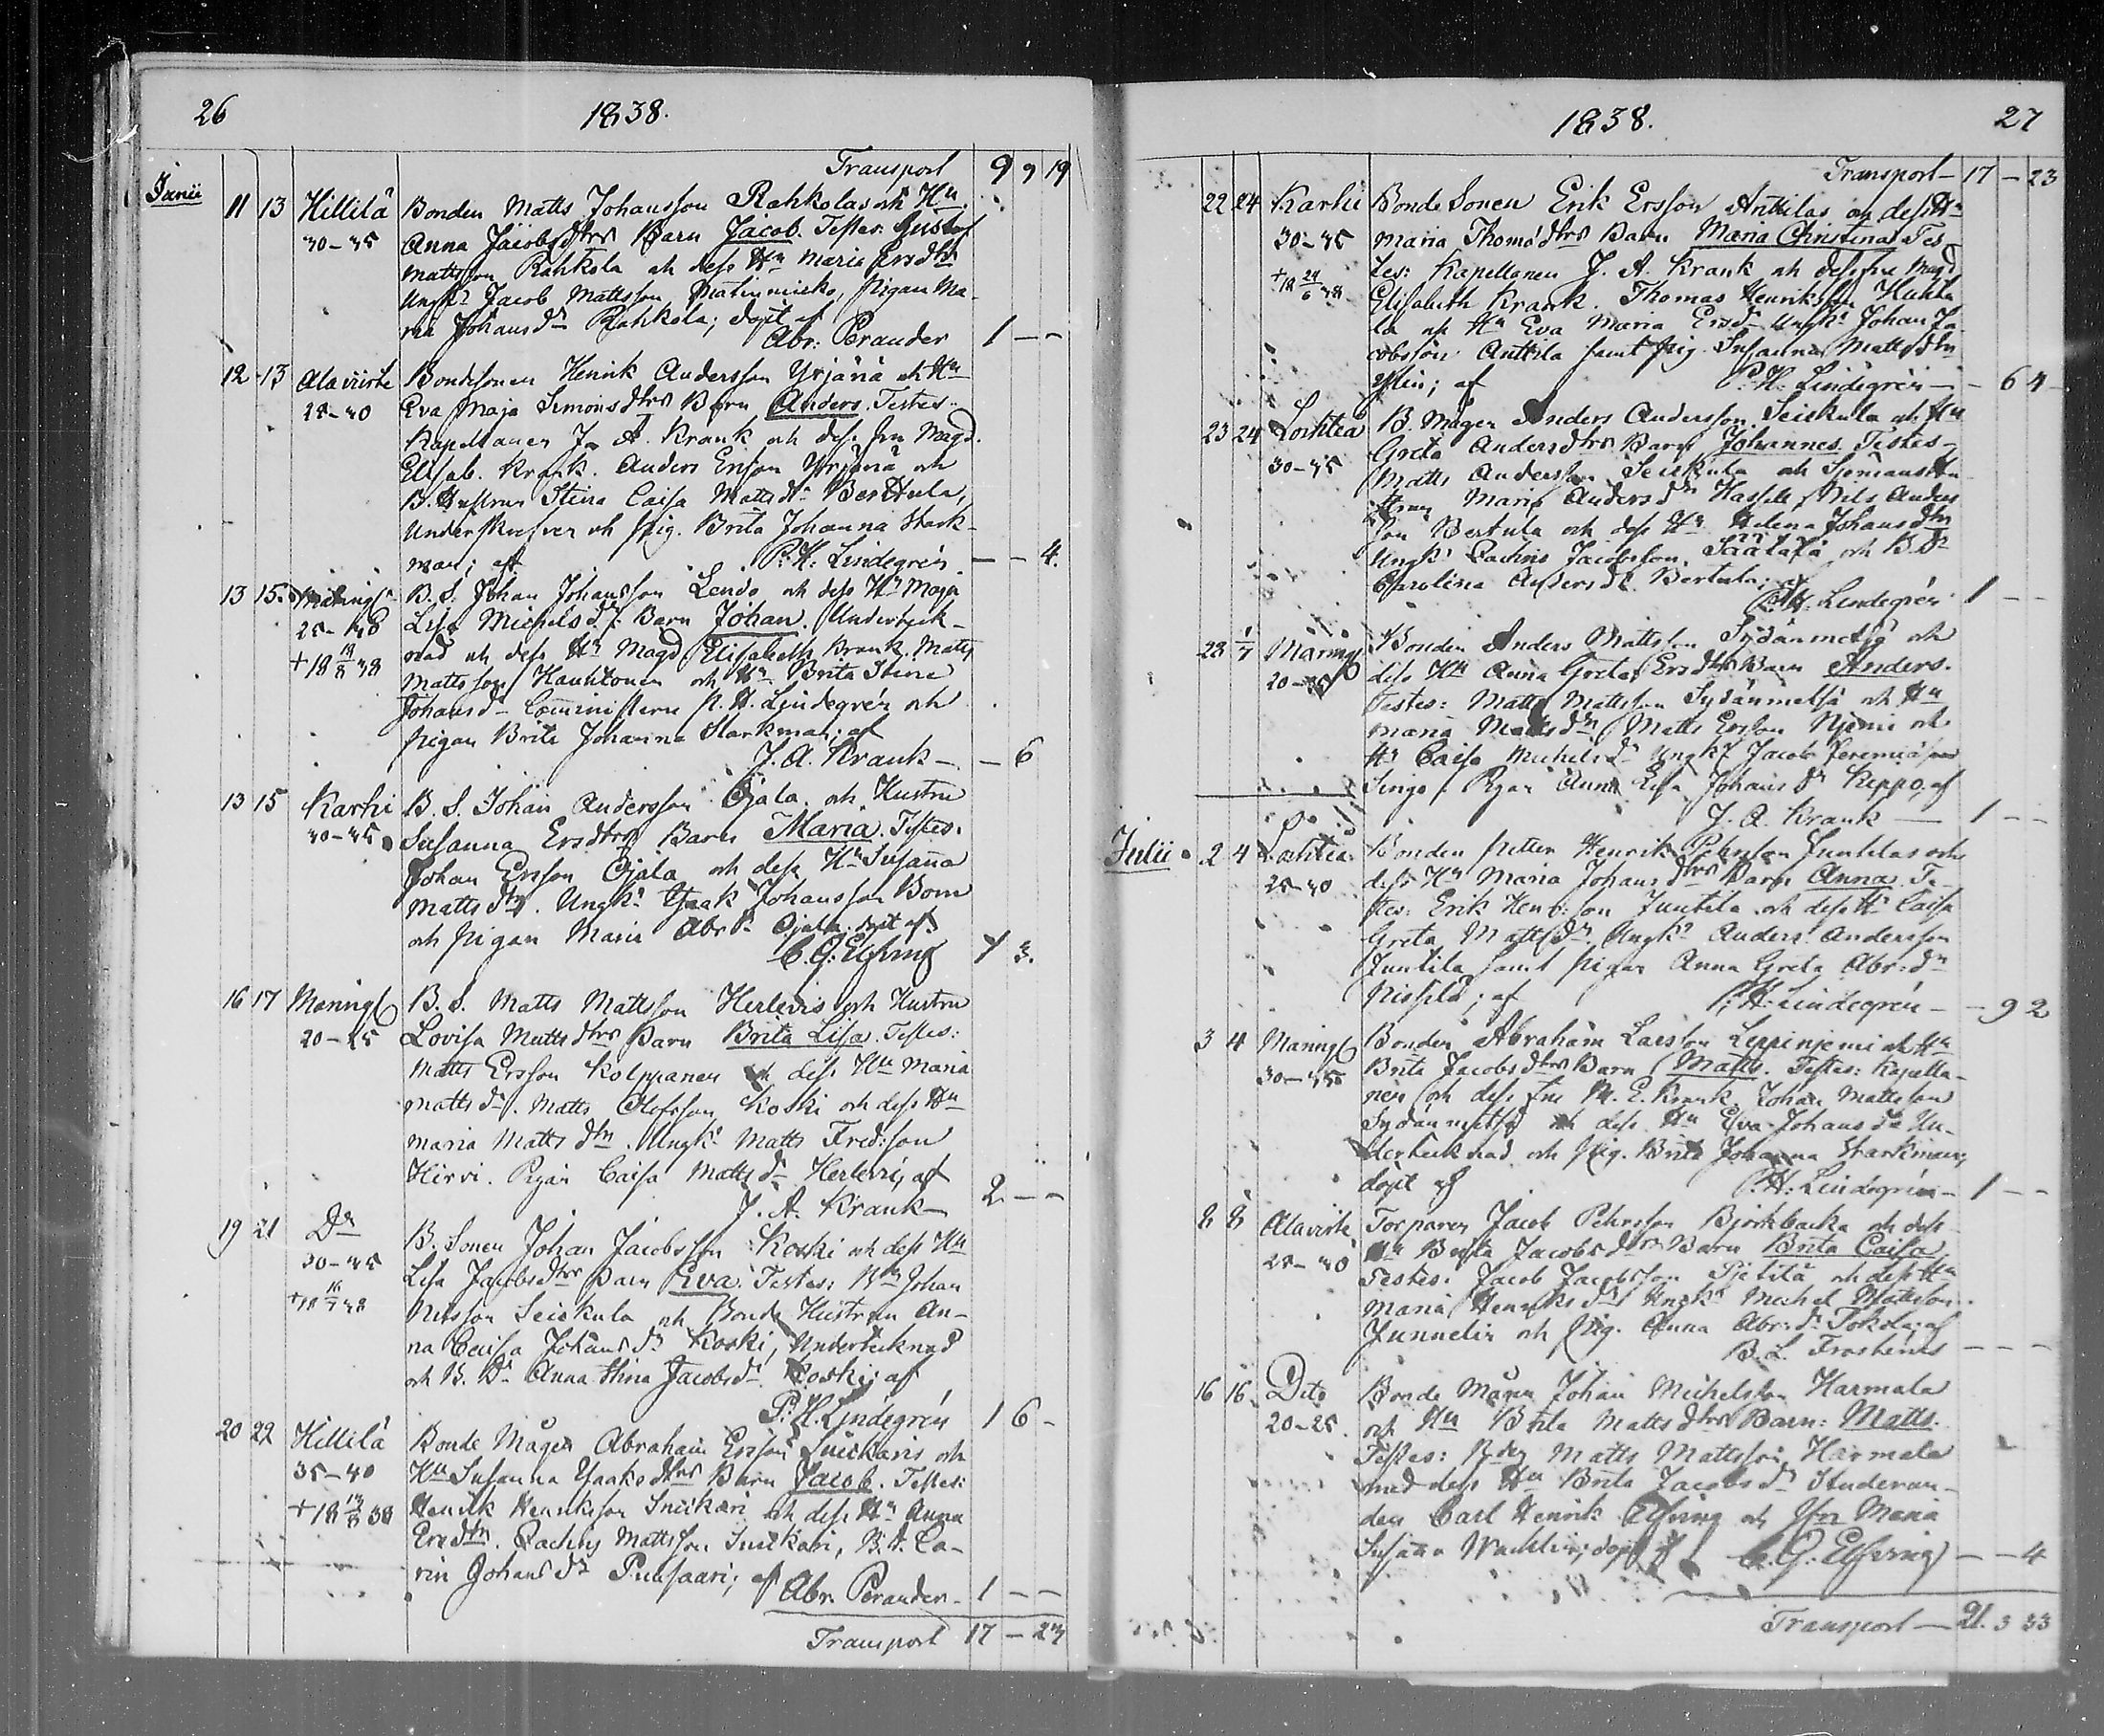 26
1838.
Transport 9 9 19
Junii 11 13 Hillilä Bonden Matts Johansson Rahkolas och Hu
30–35 Anna Jacobsdtrs Barn Jacob. Testes. Gustaf
Mattsson Rahkola och dess Hu Maria Ersdtr
Ungkn Jacob Mattsson, pigan Ma-
ria Johansdr Rahkola; döpt af
Abr. Perander 1 – –
12 13 Alaviirte Bondesonen Henrik Andersson Yrjänä och Hu
25–30 Eva Maja Simonsdtrs Barn Anders. Testes:
Kapellanen J. A. Krank och dess fru Magd.
Elisab. Krank. Anders Ersson Yrjänä och
B. Hustrun Stina Caisa Mattsdr Berttula,
och pig. Brita Johanna Stark-
man; af P. H. Lindegrén – – 4.
13 15 Maningk B. S. Johan Johansson och dess Hu Maja
25– Lisa Michelsdrs Barn Johan. Underteck-
+18 38 nad och dess Hu Magd Elisabeth Krank. Matts
Mattsson Kauhtonen och Hu Brita Stina
Johansdr P. H. Lindegrén och
pigan Brita Johanna Starkman; af
J. A. Krank – – 6
13 15 Karhi B. S. Johan Andersson Ojala och Hustru
30–35 Susanna Ersdtrs Barn Maria. Testes.
Johan Ersson Ojala och dess Hu Susanna
Mattsdtr. Ungkn Isaak Johansson
och pigan Maria Abrdr Ojala. döpt af
C. G. Elfving 4 3.
16 17 Maningk B. S. Matts Mattsson Herlevis och Hustru
20–25 Lovisa Mattsdtrs Barn Brita Lisa. Testes:
Matts Ersson Kolppanen och dess Hu Maria
Mattsdr. Matts Olofsson Koski och dess Hu
Maria Mattsdtr. Ungkn Matts Fredsson
Hirvi. Pigan Caisa Mattsdr Herlevi; af
J. A. Krank 2 – –
19 21 Do B. Sonen Johan Jacobsson Koski och dess Hu
30–35 Lisa Jacobsdtrs Barn Eva. Testes: Johan
Nilsson Seiskula och Bonde Hustrun An-
na Caisa Johansdr Koski, Undertecknad
och B. Dr Anna Stina Jacobsdr Koski; af
P. H. Lindegrén 1 6 –
20 22 Hillilä Bonde Mågen Abraham Ersson Snickaris och
35–40 Hu Susanna Isaaksdtrs Barn Jacob. Testes:
Henrik Henriksson Snickari och dess Hu Anna
Ersdtr. Zachris Mattsson Snickari, B. d. Ca-
rin Johansdr Puusaari; af Abr. Perander – 1 – –
Transport 17 – 23
1838.
27
Transport – 17 – 23
22 24 Karhi Bonde Sonen Erik Ersson Anttilas och dess Hu
30–35 Maria Thomædtrs Barn Maria Christina. Tes-
+18 24/6 38 tes: Kapellanen J. A. Krank och dess fru Magd
Elisabeth Krank. Thomas Henriksson Huhta
la och Hu Eva Maria Ersdr Ungkn Johan Ja-
cobsson Anttila samt pig. Susanna Mattsdtr
; af P. H. Lindegrén – – 6 4 –
23 24 Lochteå B. Mågen Anders Andersson Seiskula och Hu
30–35 Greta Andersdtrs Barn Johannes. Testes –
Matts Andersson Seiskula och Sjömans
Maria Andersdtr Nils Anders
son Bertula och dess Hu Helena Johansdtr
Ungkn Zachris Jacobsson och B. Dr
Carolina Andersdr Bertula; af
P. H. Lindegrén 1 – –
28 1/7 Maningk Bonden Anders Mattsson Sydänmetsä och
20–25 dess Hu Anna Greta Ersdtrs Barn Anders.
Testes: Matts Mattsson Sydänmetsä och Hu
Maria Mattsdtr, Matts Ersson Niemi och
Hu Caisa Michelsdr Ungkn Jacob
Pigan Anna Lisa Johansdr Keppo, af
J. A. Krank – 1 – –
Julii 2 4 Lochteå Bonden Petter Henrik Pehrsson Juntilas och
25–30 dess Hu Maria Johansdtrs Barn Anna. Te-
stes: Erik Henrsson Juntila och dess Hu Caisa
Greta Mattsdr. Ungkn Anders Andersson
Juntila samt pigan Anna Greta Abr:dr
; af P. H. Lindegrén – – 9 2
3 4 Maningk Bonden Abraham Larsson Leppiniemi och Hu
30–35 Brita Jacobsdtrs Barn Matts. Testes: Kapella-
nen och dess fru M. E. Krank, Johan Mattsson
Sydänmetsä och dess Hu Eva Johansdr Un-
dertecknad och pig. Brita Johanna Starkman;
döpt af P. H. Lindegrén – 1 – –
8 8 Alaviirte Torparen Jacob Pehrsson Björkbacka och dess
25–30 Hu Brita Jacobsdtrs Barn Brita Caisa,
Testes: Jacob Jacobsson Pietilä och dess Hu
Maria Henriksdtr Ungkn Michel Mattsson
Junnelin och pig. Anna Abr:dr Tokola; af
B. L. Frosterus – – –
16 16 Dito Bonde Mågen Johan Michelsson Harmala
20–25 och Hu Brita Mattsdtrs Barn: Matts.
Testes: Matts Mattsson Harmala
med dess Hu Brita Jacobsdr Studeran-
den Carl Henrik Elfving och Jfr Maria
Susanna Wacklin; döpt af C. G. Elfving – – 4
Transport – 21. 3 33